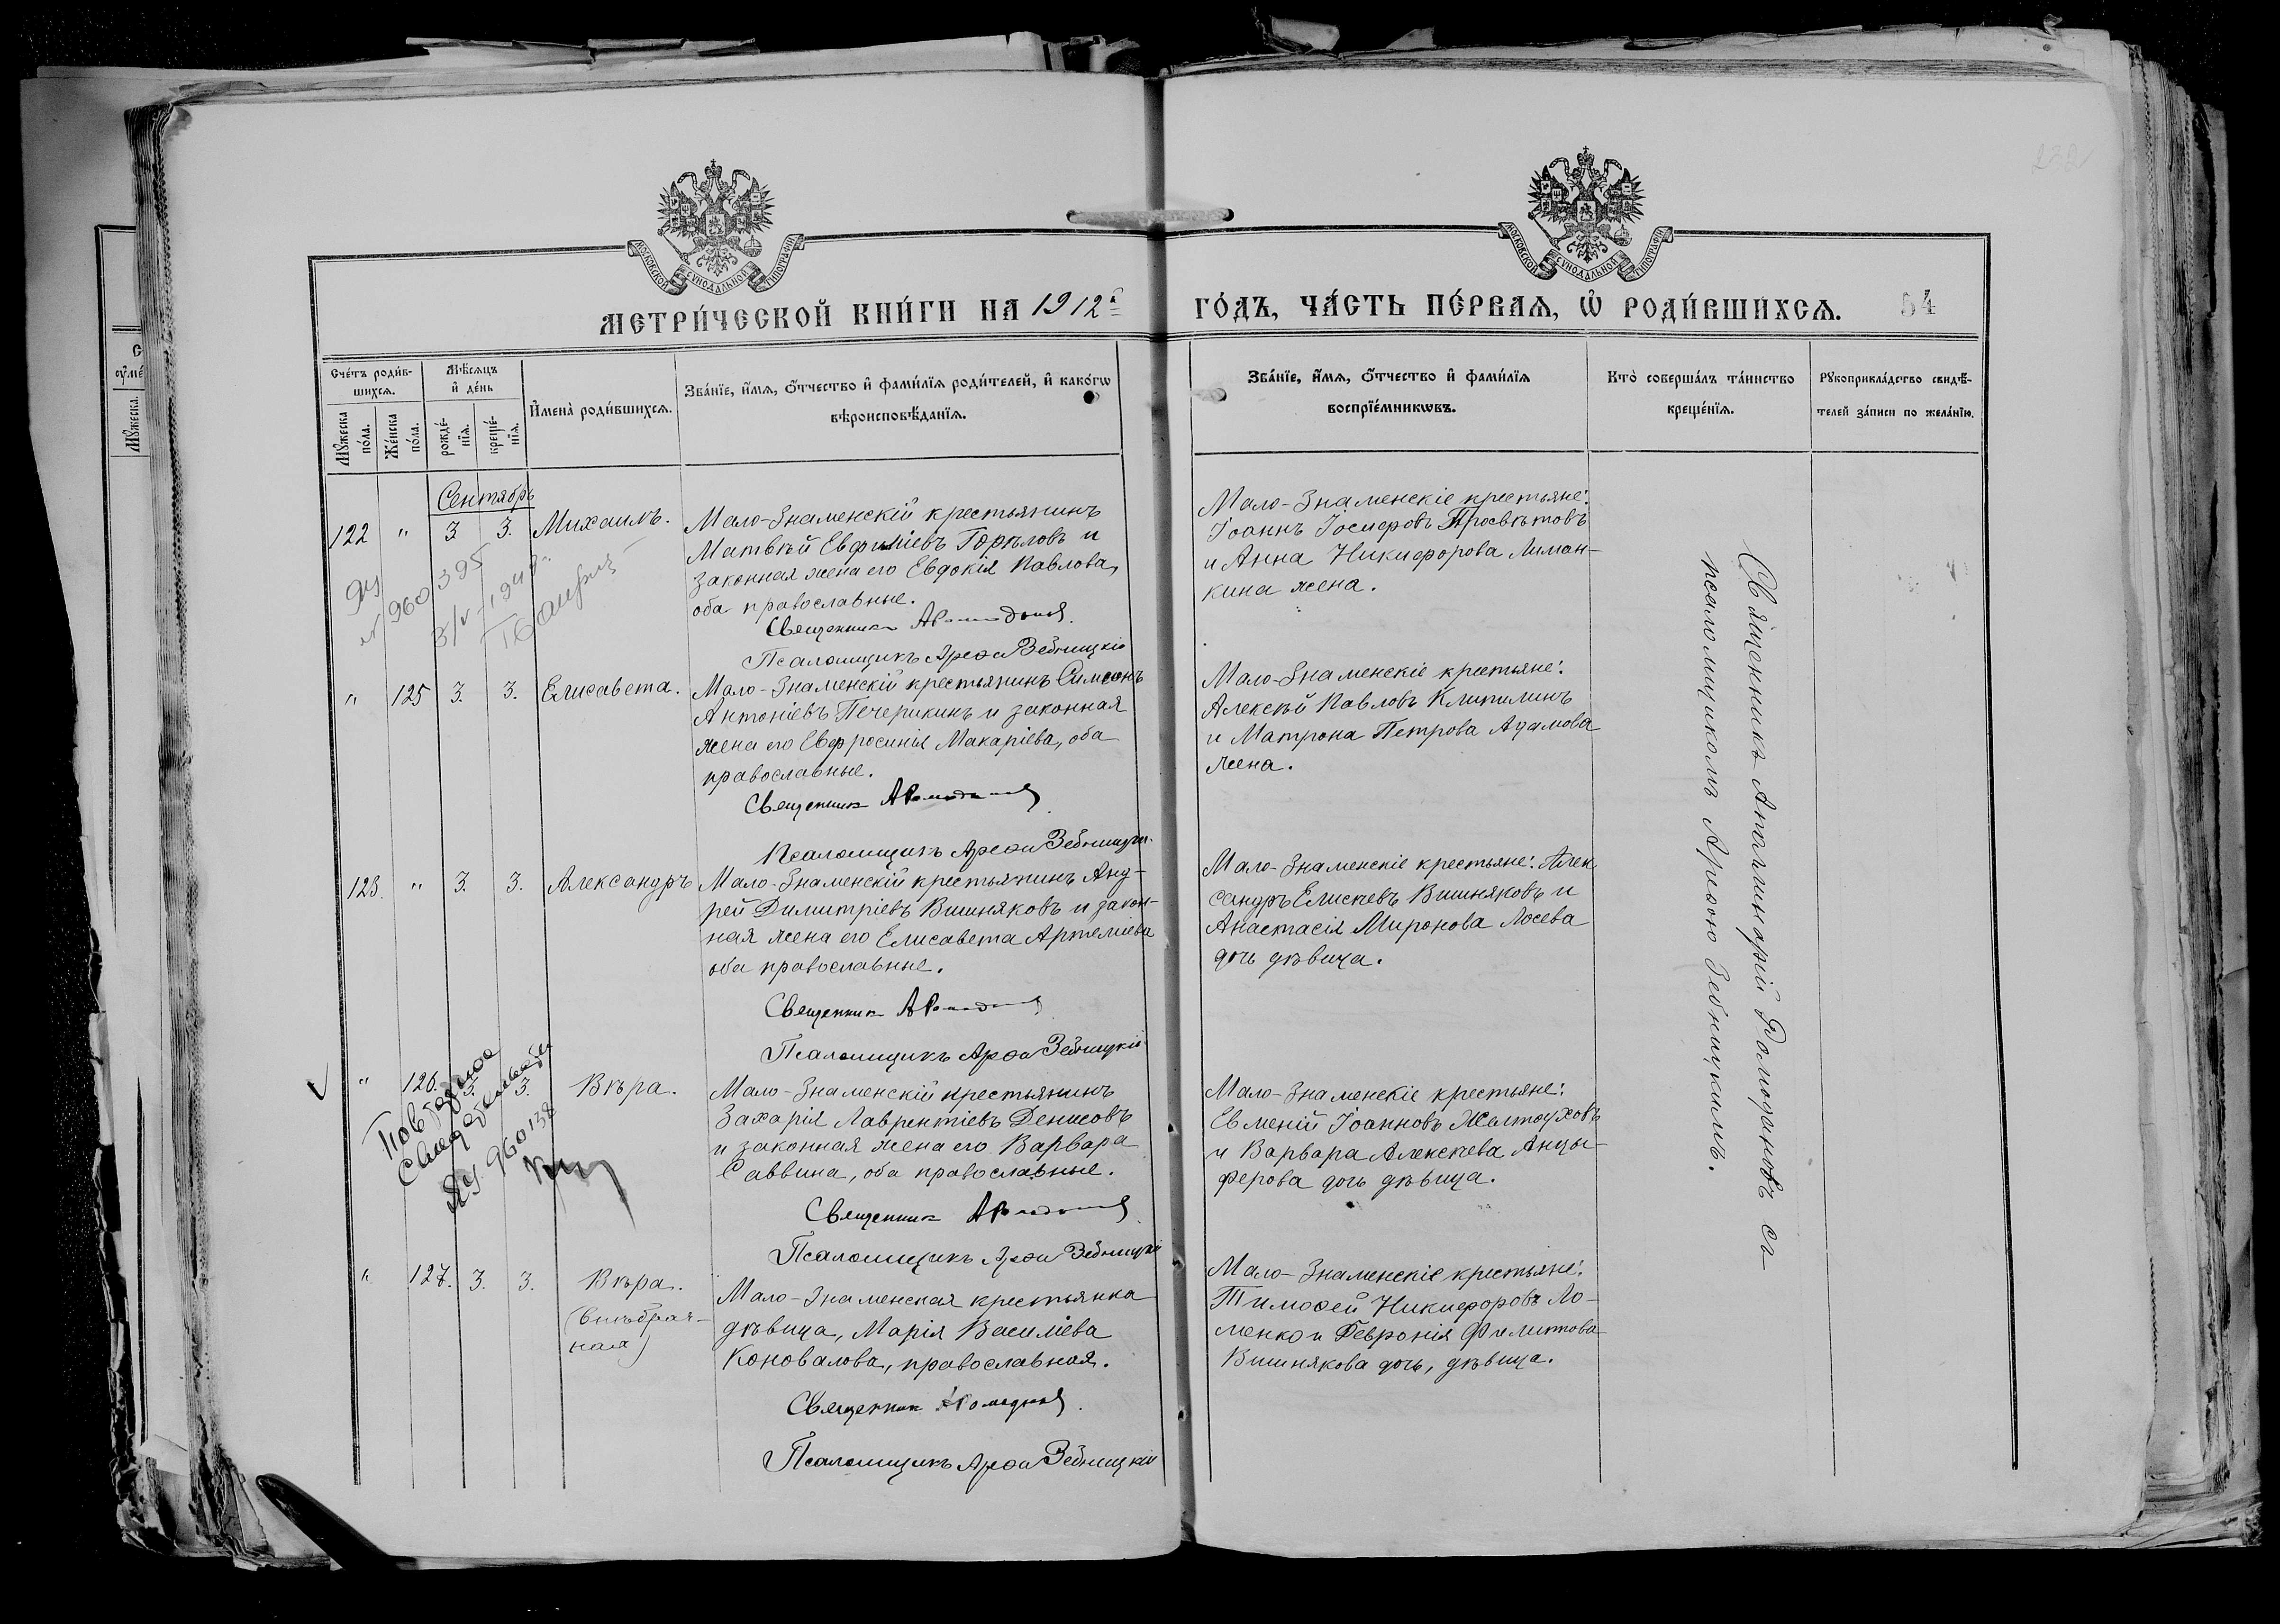 МОСКОВСКОЙ СѴНОДАЛЬНОЙ ТИПОГРАФІИ
МОСКОВСКОЙ СѴНОДАЛЬНОЙ ТИПОГРАФІИ
МЕТРИ́ЧЕСКОЙ КНИ́ГИ НА 1912й
ГО́ДЪ, ЧА́СТЬ ПЕ́РВАѦ, Ѡ҆ РОДИ́ВШИХСѦ.
54
Сче́тъ роди́в-
шихсѧ.
Мꙋ́жеска
по́ла.
Же́нска
по́ла.
Мѣ́сѧцъ
и҆ де́нь
рожде́-
нїѧ.
креще́-
нїѧ.
И҆мена̀ роди́вшихсѧ.
Зва́нїе, и҆́мѧ, ѻ҆́тчество и҆ фами́лїѧ роди́телей, и҆ како́гѡ
вѣроисповѣ́данїѧ.
Зва́нїе, и҆́мѧ, ѻ҆́тчество и҆ фами́лїѧ
воспрїе́мникѡвъ.
Кто̀ соверша́лъ та́инство
креще́нїѧ.
Рꙋкоприкла́дство свидѣ́-
телей за́писи по жела́нїю.
Мꙋ́жеска
Сентябрь
122 " 3 3. Михаилъ.
Мало-Знаменскій крестьянинъ
Матвѣй Евфиміевъ Горѣловъ и
законная жена его Евдокія Павлова,
оба православные.
Священникъ
Псаломщикъ Арефа Зебницкій
Мало-Знаменскіе крестьяне:
Іоаннъ Іосифовъ Просвѣтовъ
и Анна Никифорова Лиман-
кина жена.
№ 960395
" 125 3. 3. Елисавета.
Мало-Знаменскій крестьянинъ Симеонъ
Антоніевъ Печерикинъ и законная
жена его Евфросинія Макаріева, оба
православные.
Священникъ
Псаломщикъ Арефа Зебницкій
Мало-Знаменскіе крестьяне:
Алексѣй Павловъ
и Матрона Петрова Адамова
жена.
123. " 3. 3. Александръ
Мало-Знаменскій крестьянинъ Анд-
рей Димитріевъ Вишняковъ и закон-
ная жена его Елисавета Артеміева
оба православные.
Священникъ
Псаломщикъ Арефа Зебницкій
Мало-Знаменскіе крестьяне: Алек
сандръ Елисѣевъ Вишняковъ и
Анастасія Миронова Лосева
дочь дѣвица.
" 126. 3. 3. Вѣра.
Мало-Знаменскій крестьянинъ
Захарія Лаврентіевъ Денисовъ
и законная жена его Варвара
Саввина, оба православные.
Священникъ
Псаломщикъ Арефа Зебницкій
Мало-Знаменскіе крестьяне:
Евменій Іоанновъ Желтоуховъ
и Варвара Алексѣева Анцы-
ферова дочь дѣвица.
Повторное
Свидетельство
ЯУ 960138
" 127. 3. 3. Вѣра.
(внѣбрач-
ная)
Мало-Знаменская крестьянка
дѣвица, Марія Василіева
Коновалова, православная.
Священникъ
Псаломщикъ Арефа Зебницкій
Мало-Знаменскіе крестьяне:
Тимофей Никифоровъ Ло-
менко и Февронія Филиппова
Вишнякова дочь, дѣвица.
Священникъ Аполлинарій Ромодановъ съ
псаломщикомъ Арефою Зебницкимъ.